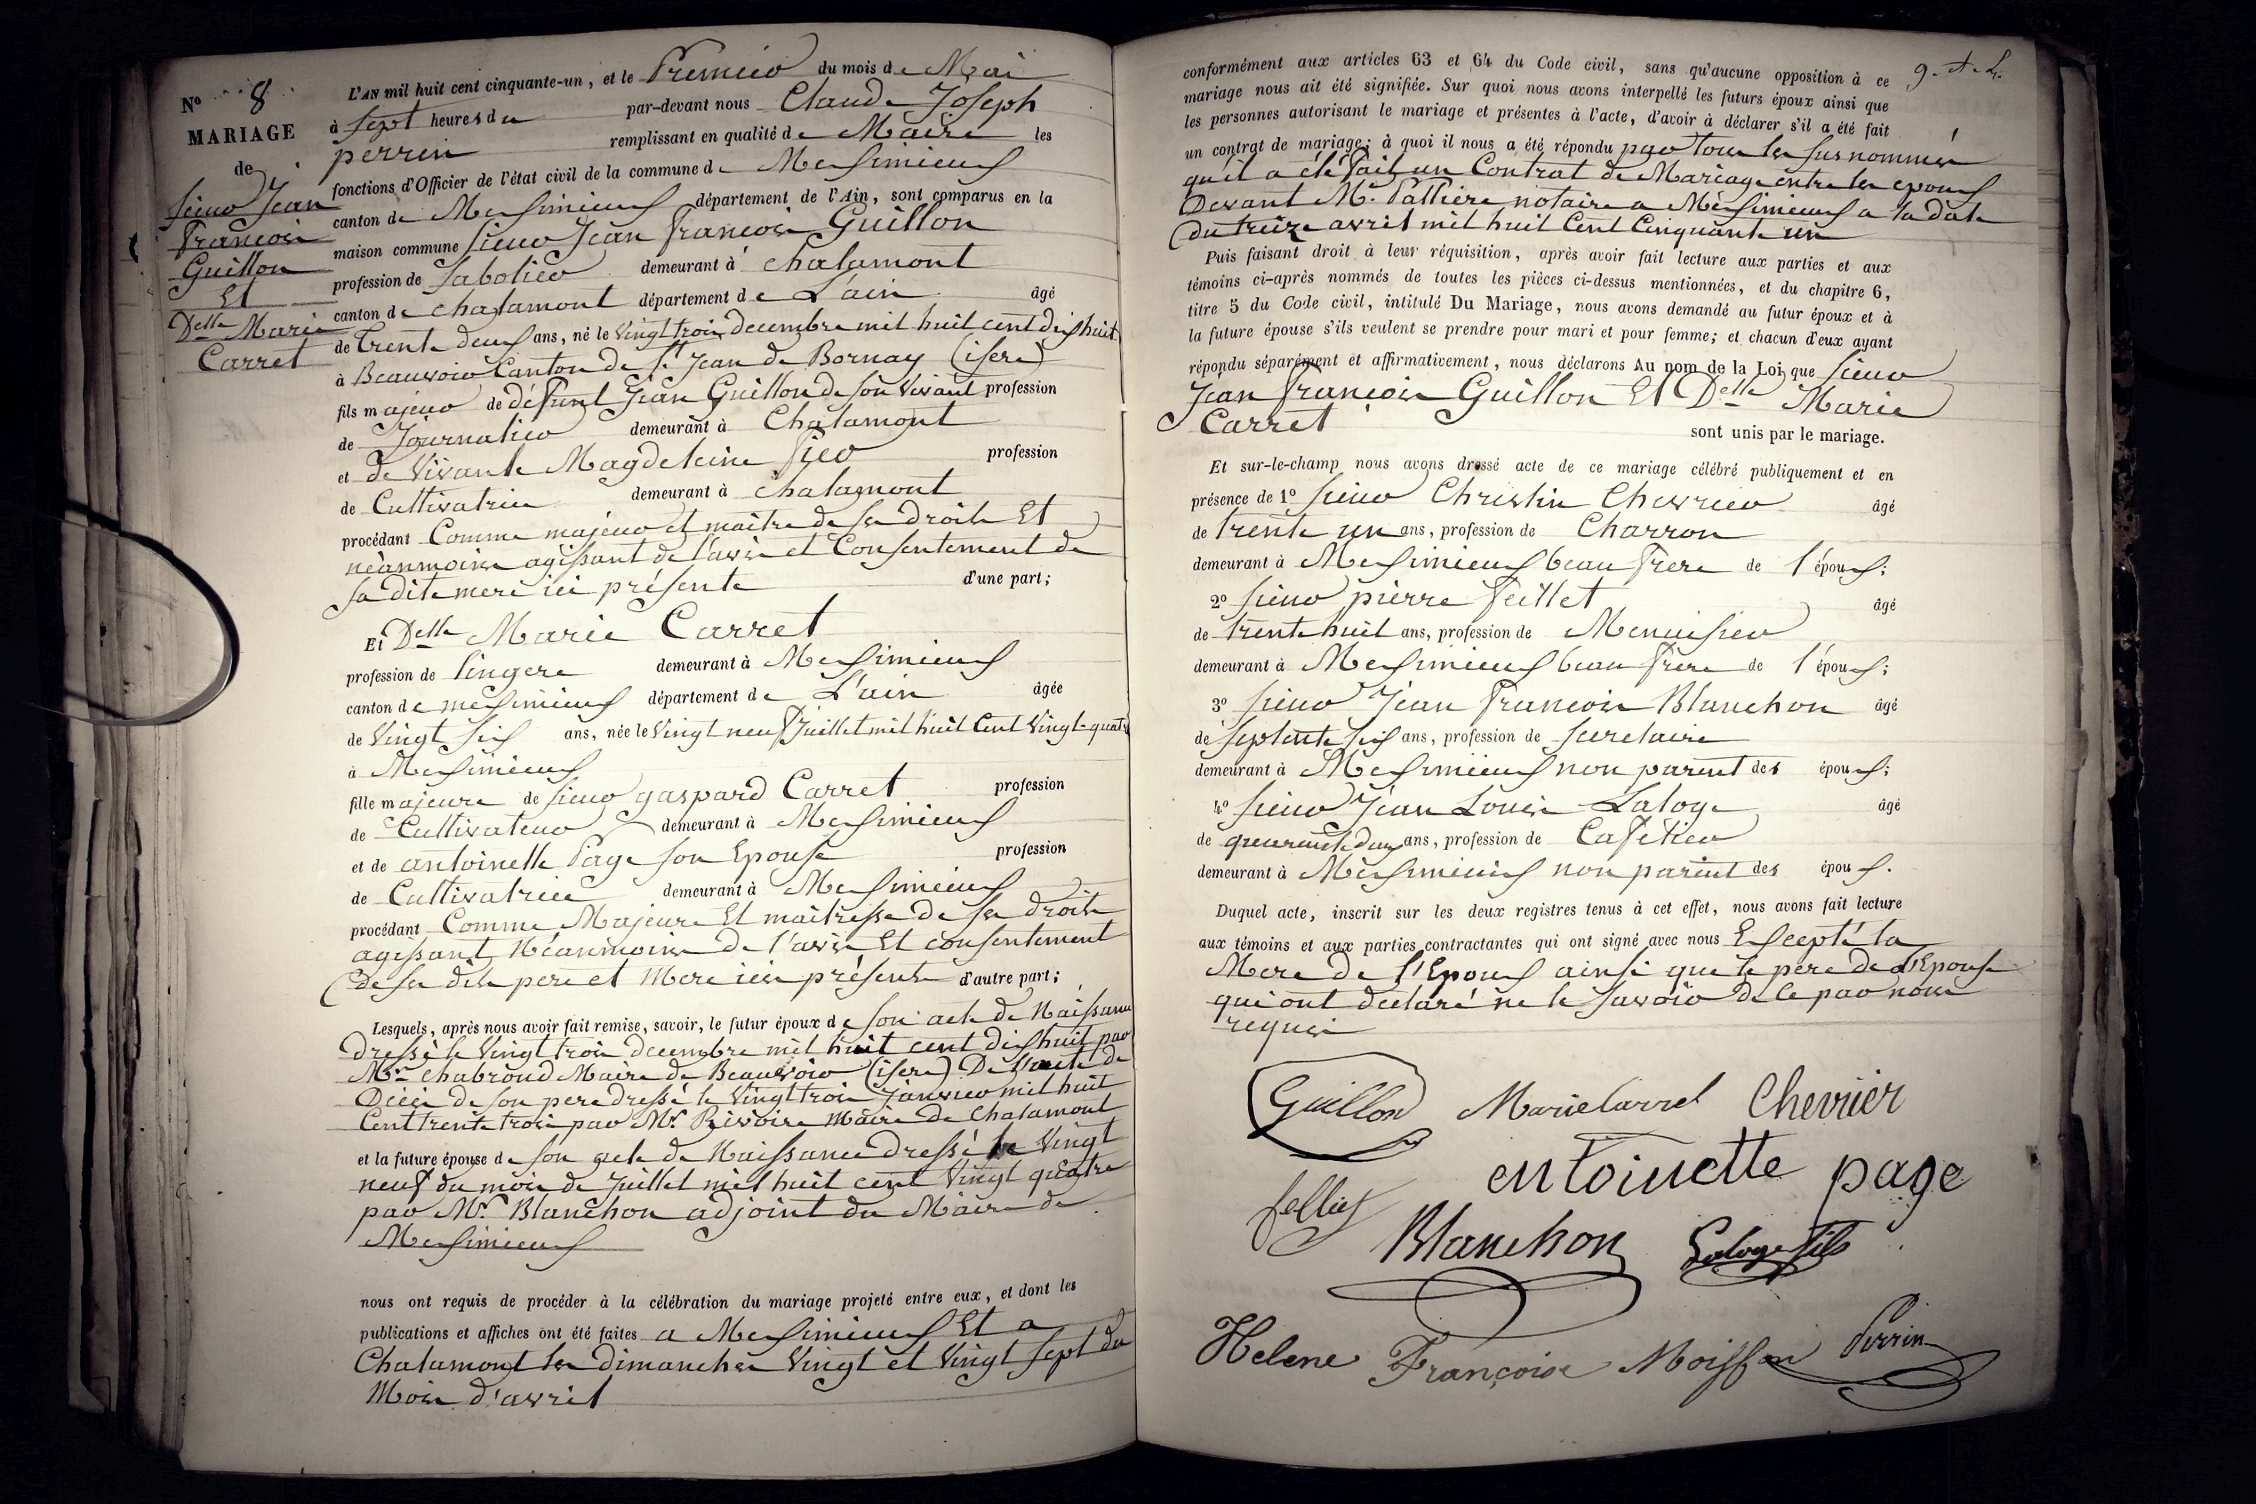 N° 8
MARIAGE
de
sieur Jean
François
Guillon
Et
Delle Marie
Carret
L'AN mil huit cent cinquante-un, et le Premier du mois de Mai
à sept heures du par-devant nous Claude Joseph
perrin remplissant en qualité de Maire les
fonctions d'Officier de l'état civil de la commune de Meximieux
canton de Meximieux département de l'Ain, sont comparus en la
maison commune sieur Jean François Guillon
profession de Sabotier demeurant à chalamont
canton de chalamont département de L'ain âgé
de trente deux ans, né le vingt trois decembre mil huit cent dix huit
à Beauvoir Canton de St Jean de Bornay (isere)
fils majeur de défunt Jean Guillon de son vivant profession
de Journalier demeurant à Chalamont
et de vivante Magdeleine profession
de Cultivatrice demeurant à chalamont
procédant Comme majeur et maitre de ses droits Et
néanmoins agissant de l'avis et Consentement de
sa dite mere ici présente d'une part;
Et Delle Marie Carret
profession de lingere demeurant à Meximieux
canton de meximieux département de L'ain âgée
de vingt six ans, née le vingt neuf Juillet mil huit Cent vingt-quatre
à Meximieux
fille majeure de sieur gaspard Carret profession
de Cultivateur demeurant à Meximieux
et de antoinette Page son Epouse profession
de Cultivatrice demeurant à Meximieux
procédant Comme Majeure Et maitresse de ses droits
agissant Néanmoins de l'avis Et consentement
de ses dits pere et Mere ici présents d'autre part;
Lesquels, après nous avoir fait remise, savoir, le futur époux de son acte de Naissance
dressé le vingt trois decembre mil huit cent dix huit par
Mr chabroud Maire de Beauvoir (isere) De l'acte de
Décès de son pere dressé le vingt trois janvier mil huit
Cent trente trois par Mr Rivoire Maire de Chalamont
et la future épouse de son acte de Naissance dressé le vingt
neuf du mois de Juillet mil huit cent vingt quatre
par Mr Blanchon adjoint du Maire de
Meximieux
nous ont requis de procéder à la célébration du mariage projeté entre eux, et dont les
publications et affiches ont été faites a Meximieux Et a
Chalamont les dimanches vingt et vingt sept du
Mois d'avril
conformément aux articles 63 et 64 du Code civil, sans qu'aucune opposition à ce
mariage nous ait été signifiée. Sur quoi nous avons interpellé les futurs époux ainsi que
les personnes autorisant le mariage et présentes à l'acte, d'avoir à déclarer s'il a été fait
un contrat de mariage; à quoi il nous a été répondu par tous les susnommés
qu'il a été fait un Contrat de Mariage entre les epoux
Devant Me Pallière notaire a Méximieux a la date
du treize avril mil huit Cent Cinquante un
Puis faisant droit à leur réquisition, après avoir fait lecture aux parties et aux
témoins ci-après nommés de toutes les pièces ci-dessus mentionnées, et du chapitre 6,
titre 5 du Code civil, intitulé Du Mariage, nous avons demandé au futur époux et à
la future épouse s'ils veulent se prendre pour mari et pour femme; et chacun d'eux ayant
répondu séparément et affirmativement, nous déclarons Au nom de la Loi que sieur
Jean françois Guillon Et Delle Marie
Carret sont unis par le mariage.
Et sur-le-champ nous avons dressé acte de ce mariage célébré publiquement et en
présence de 1° sieur Christin Chevrier âgé
de trente un ans, profession de Charron
demeurant à Meximieux beau frere de l'époux;
2° sieur pierre feillet âgé
de trente huit ans, profession de Menuisier
demeurant à Meximieux beau frere de l'époux;
3° sieur Jean François Blanchon âgé
de septente six ans, profession de secretaire
demeurant à Meximieux non parent des époux;
4° sieur Jean Louis Laloge âgé
de quarante deux ans, profession de Cafetier
demeurant à Meximieux non parent des époux.
Duquel acte, inscrit sur les deux registres tenus à cet effet, nous avons fait lecture
aux témoins et aux parties contractantes qui ont signé avec nous Excepté la
Mere de l'Epoux ainsi que le pere de l'Epouse
qui ont déclaré ne le savoir de ce par nous
requis
Guillon Marie Carret Chevrier
entoinette page
Blanchon Laloge fils
Helene Françoise Moisson Perrin